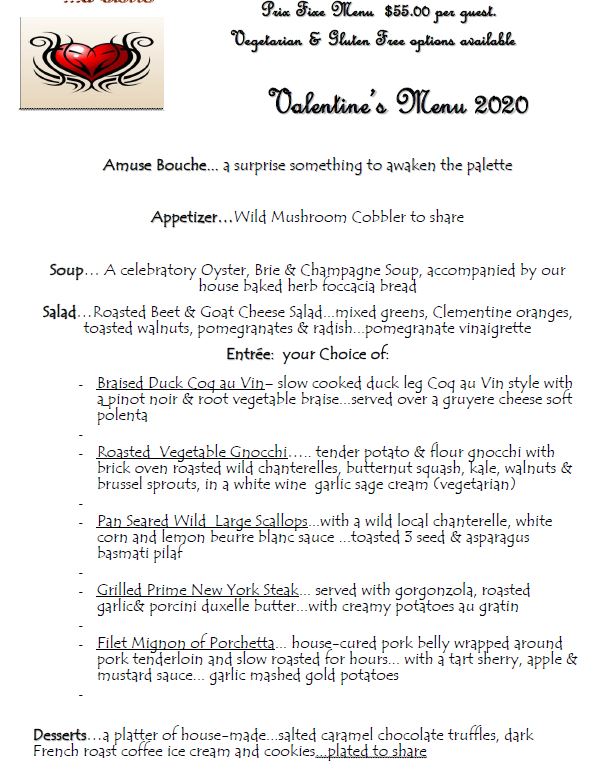 Prix Fixe Menu $55.00 per guest.
Vegetarian & Gluten Free options available
Valentine's Menu 2020
Amuse Bouche... a surprise something to awaken the palette
Appetizer...Wild Mushroom Cobbler to share
Soup... A celebratory Oyster, Brie & Champagne Soup, accompanied by our
house baked herb foccacia bread
Salad...Roasted Beet & Goat Cheese Salad...mixed greens, Clementine oranges,
toasted walnuts, pomegranates & radish...pomegranate vinaigrette
Entrée: your Choice of:
- Braised Duck Coq au Vin– slow cooked duck leg Coq au Vin style with
a pinot noir & root vegetable braise...served over a gruyere cheese soft
polenta
-
- Roasted Vegetable Gnocchi..... tender potato & flour gnocchi with
brick oven roasted wild chanterelles, butternut squash, kale, walnuts &
brussel sprouts, in a white wine garlic sage cream (vegetarian)
-
- Pan Seared Wild Large Scallops...with a wild local chanterelle, white
corn and lemon beurre blanc sauce ...toasted 3 seed & asparagus
basmati pilaf
-
- Grilled Prime New York Steak... served with gorgonzola, roasted
garlic& porcini duxelle butter...with creamy potatoes au gratin
-
- Filet Mignon of Porchetta... house-cured pork belly wrapped around
pork tenderloin and slow roasted for hours... with a tart sherry, apple &
mustard sauce... garlic mashed gold potatoes
-
Desserts...a platter of house-made...salted caramel chocolate truffles, dark
French roast coffee ice cream and cookies...plated to share